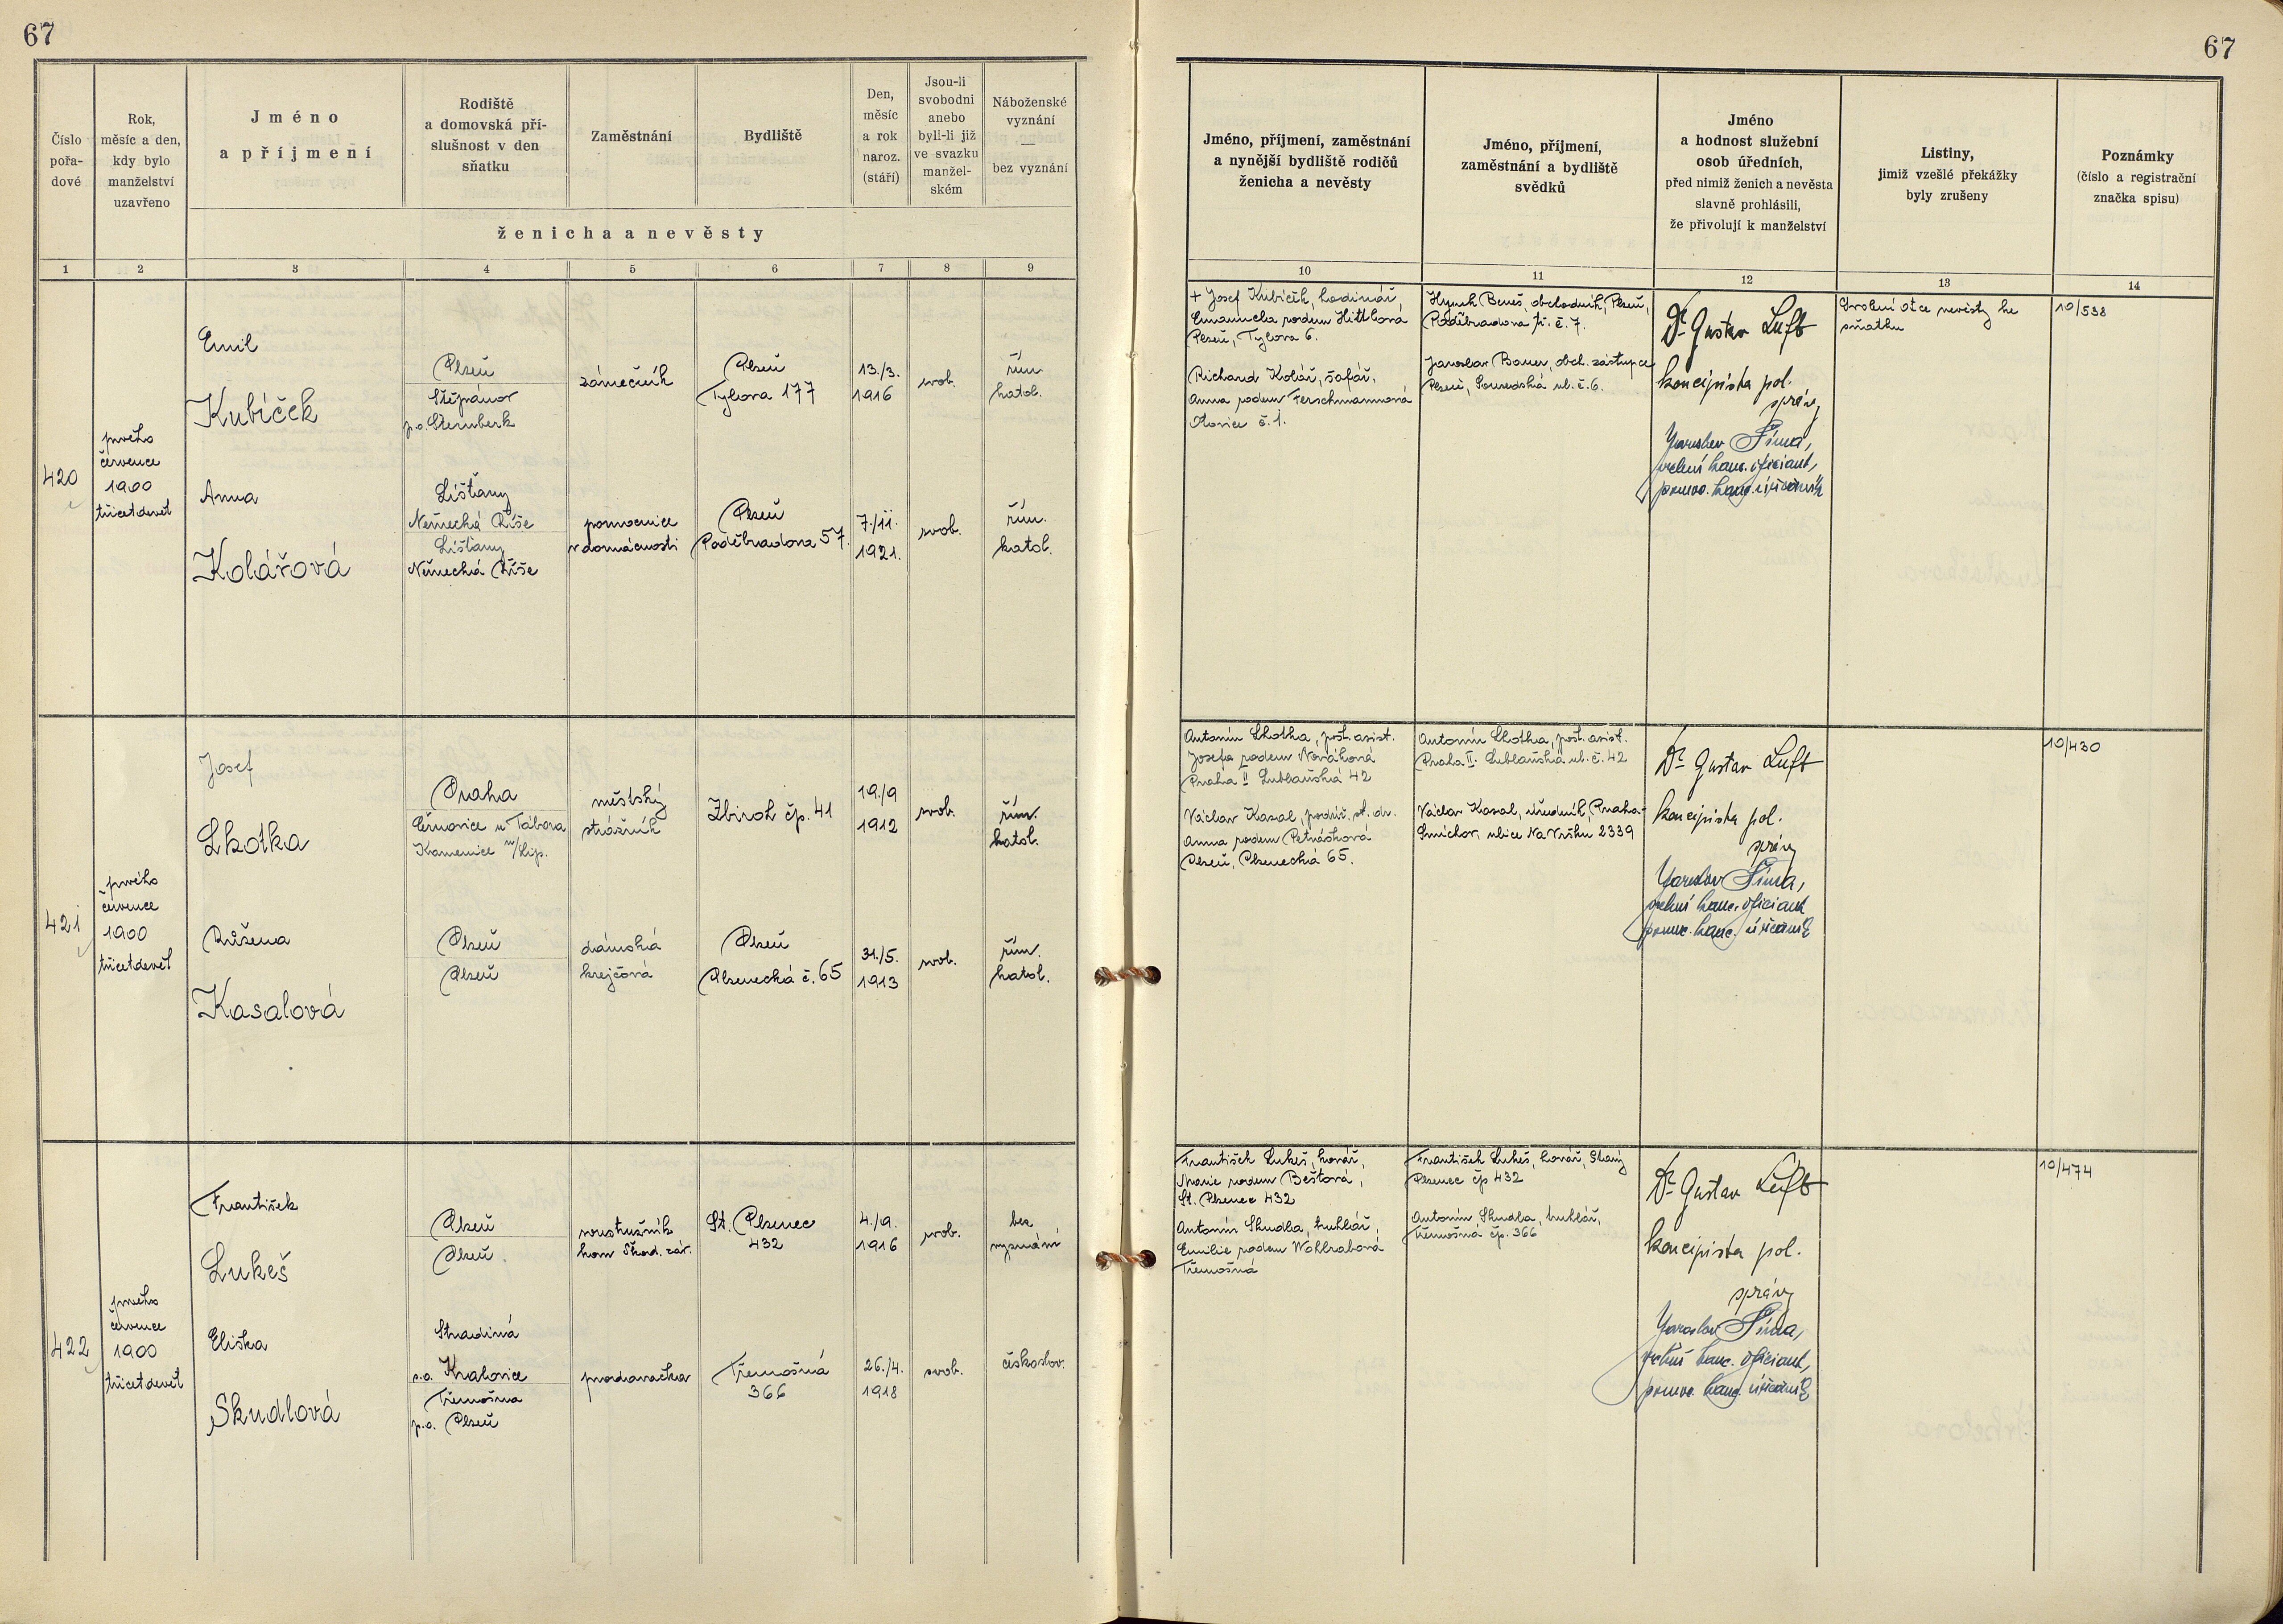 67
67
Číslo
pořa-
dové
Rok,
měsíc a den,
kdy bylo
manželství
uzavřeno
Jméno
a příjmení
Rodiště
a domovská pří-
slušnost v den
sňatku
Zaměstnání
Bydliště
Den,
měsíc
a rok
naroz.
(stáří)
Jsou-li
svobodni
anebo
byli-li již
ve svazku
manžel-
ském
Náboženské
vyznání
—
bez vyznání
ženicha a nevěsty
1 2 3 4 5 6 7 8 9
Jméno, příjmení, zaměstnání
a nynější bydliště rodičů
ženicha a nevěsty
Jméno, příjmení,
zaměstnání a bydliště
svědků
Jméno
a hodnost služební
osob úředních,
před nimiž ženich a nevěsta
slavně prohlásili,
že přivolují k manželství
Listiny,
jimiž vzešlé překážky
byly zrušeny
Poznámky
(číslo a registrační
značka spisu)
10 11 12 13 14
420
prvého
července
1900
třicetdevět
Emil
Kubíček
Plzeň
Štěpánov
p.o. Šternberk
zámečník
Plzeň
Tylova 177
13./3.
1916
svob.
řím.
katol.
Anna
Kolářová
Líšťany
Německá Říše
Líšťany
Německá Říše
pomocnice
v domácnosti
Plzeň
Poděbradova 57.
7./11.
1921.
svob.
řím.
katol.
+ Josef Kubíček, hodinář,
Emanuela rodem
Plzeň, Tylova 6.
Richard Kolář, šafář,
Anna rodem Ferschmannová
č. 1.
Hynek Beneš, obchodník, Plzeň,
Poděbradova tř. č. 7.
Jaroslav Bauer, obch. zástupce
Plzeň, Sousedská ul. č. 6.
Dr Gustav Luft
koncipista pol.
správy
Jaroslav Šíma,
vrchní kanc. oficiant,
pomoc. kanc. úředník
Svolení otce nevěsty ke
sňatku
10/538
421
prvého
července
1900
třicetdevět
Josef
Lhotka
Praha
Černovice u Tábora
Kamenice n/Lip.
městský
strážník
Zbiroh čp. 41
19./9
1912
svob.
řím.
katol.
Růžena
Kasalová
Plzeň
Plzeň
dámská
krejčová
Plzeň
Plzenecká č. 65
31./5.
1913
svob.
řím.
katol.
Antonín Lhotka, pošt. asist.
Josefa rodem Nováková
Praha II Lublaňská 42
Václav Kasal, podúř. st. dr.
Anna rodem Petrásková
Plzeň, Plzenecká 65.
Antonín Lhotka, pošt. asist.
Praha II. Lublaňská ul. č. 42
Václav Kasal, úředník, Praha-
Smíchov, ulice Na Vršku 2339
Dr Gustav Luft
koncipista pol.
správy
Jaroslav Šíma,
vrchní kanc. oficiant
pomoc. kanc. úředník
10/430
422
prvého
července
1900
třicetdevět
František
Lukeš
Plzeň
Plzeň
soustružník
kovu Škod. záv.
St. Plzenec
432
4./9.
1916
svob.
bez
vyznání
Eliška
Skudlová
Hradiná
s.o. Kralovice
Třemošna
p.o. Plzeň
prodavačka
Třemošná
366
26./4.
1918
svob.
českoslov.
František Lukeš, kovář,
Marie rodem Beštová,
St. Plzenec 432
Antonín Skudla, truhlář,
Emilie rodem Wohlrabová
Třemošná
František Lukeš, kovář, Starý
Plzenec čp 432
Antonín Skudla, truhlář,
Třemošná čp. 366
Dr Gustav Luft
koncipista pol.
správy
Jaroslav Šíma,
vrchní kanc. oficiant,
pomoc. kanc. úředník
10/474